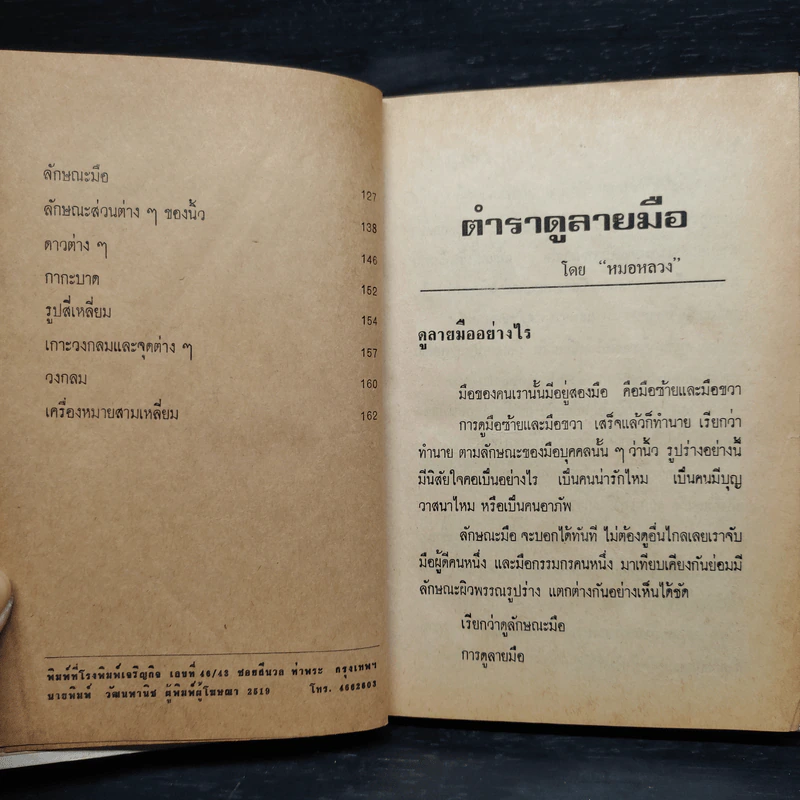 ลักษณะมือ 127
ลักษณะส่วนต่าง ๆ ของนิ้ว 138
ดาวต่าง ๆ 146
กากะบาด 152
รูปสี่เหลี่ยม 154
เกาะวงกลมและจุดต่าง ๆ 157
วงกลม 160
เครื่องหมายสามเหลี่ยม 162
พิมพ์ที่โรงพิมพ์เจริญกิจ เลขที่ 46/43 ซอยสีนวล ท่าพระ กรุงเทพฯ
นายพิมพ์ วัฒนหานิช ผู้พิมพ์ผู้โฆษณา 2519 โทร. 4662603
ตำราดูลายมือ
โดย “หมอหลวง”
ดูลายมืออย่างไร
มือของคนเรานั้นมีอยู่สองมือ คือมือซ้ายและมือขวา
การดูมือซ้ายและมือขวา เสร็จแล้วก็ทำนาย เรียกว่า
ทำนาย ตามลักษณะของมือบุคคลนั้น ๆ ว่านิ้ว รูปร่างอย่างนี้
มีนิสัยใจคอเป็นอย่างไร เป็นคนน่ารักไหม เป็นคนมีบุญ
วาสนาไหม หรือเป็นคนอาภัพ
ลักษณะมือ จะบอกได้ทันที ไม่ต้องดูอื่นไกลเลยเราจับ
มือผู้ดีคนหนึ่ง และมือกรรมกรคนหนึ่ง มาเทียบเคียงกันย่อมมี
ลักษณะผิวพรรณรูปร่าง แตกต่างกันอย่างเห็นได้ชัด
เรียกว่าดูลักษณะมือ
การดูลายมือ